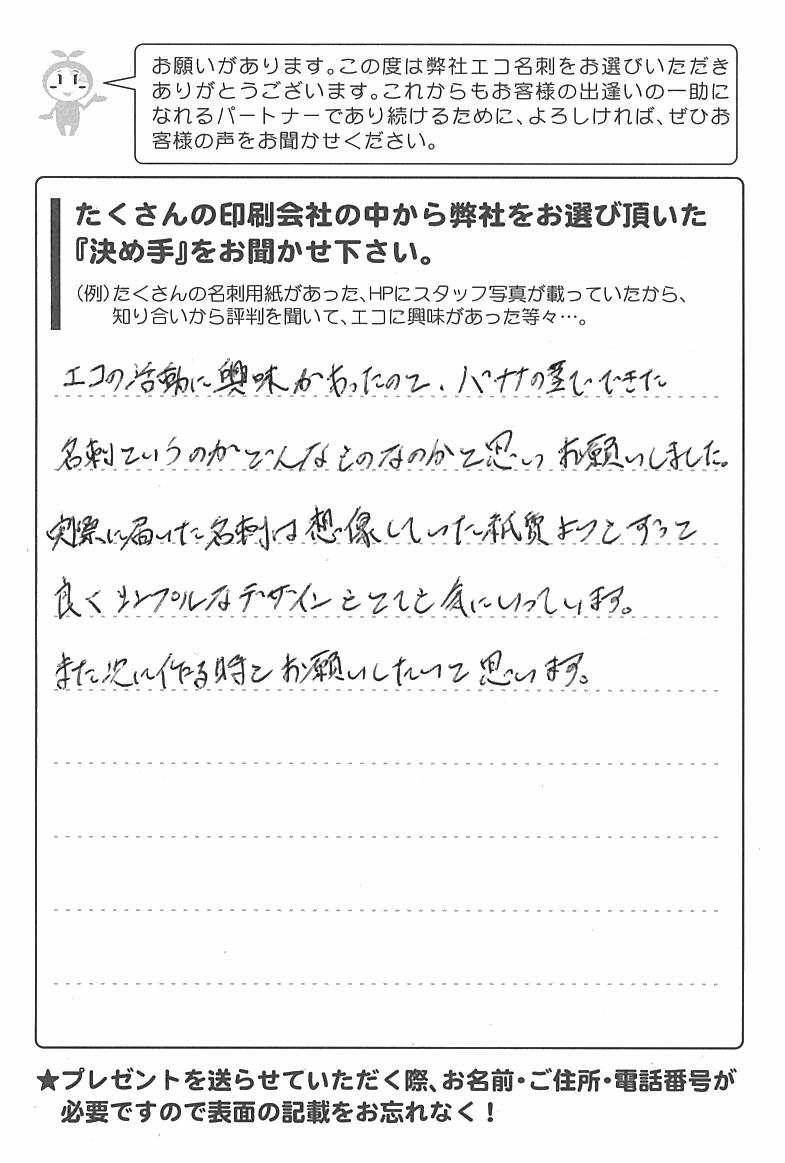 お願いがあります。この度は弊社エコ名刺をお選びいただき
ありがとうございます。これからもお客様の出逢いの一助に
なれるパートナーであり続けるために、よろしければ、ぜひお
客様の声をお聞かせください。
たくさんの印刷会社の中から弊社をお選び頂いた
『決め手』をお聞かせ下さい。
(例)たくさんの名刺用紙があった、HPにスタッフ写真が載っていたから、
知り合いから評判を聞いて、エコに興味があった等々…。
エコの活動に興味があったのと、バナナの茎でできた
名刺というのがどんなものなのかと思いお願いしました。
実際に届いた名刺は想像していた紙質よりもずっと
良くシンプルなデザインもとても気にいっています。
また次に作る時もお願いしたいと思います。
★プレゼントを送らせていただく際、お名前・ご住所・電話番号が
必要ですので表面の記載をお忘れなく！